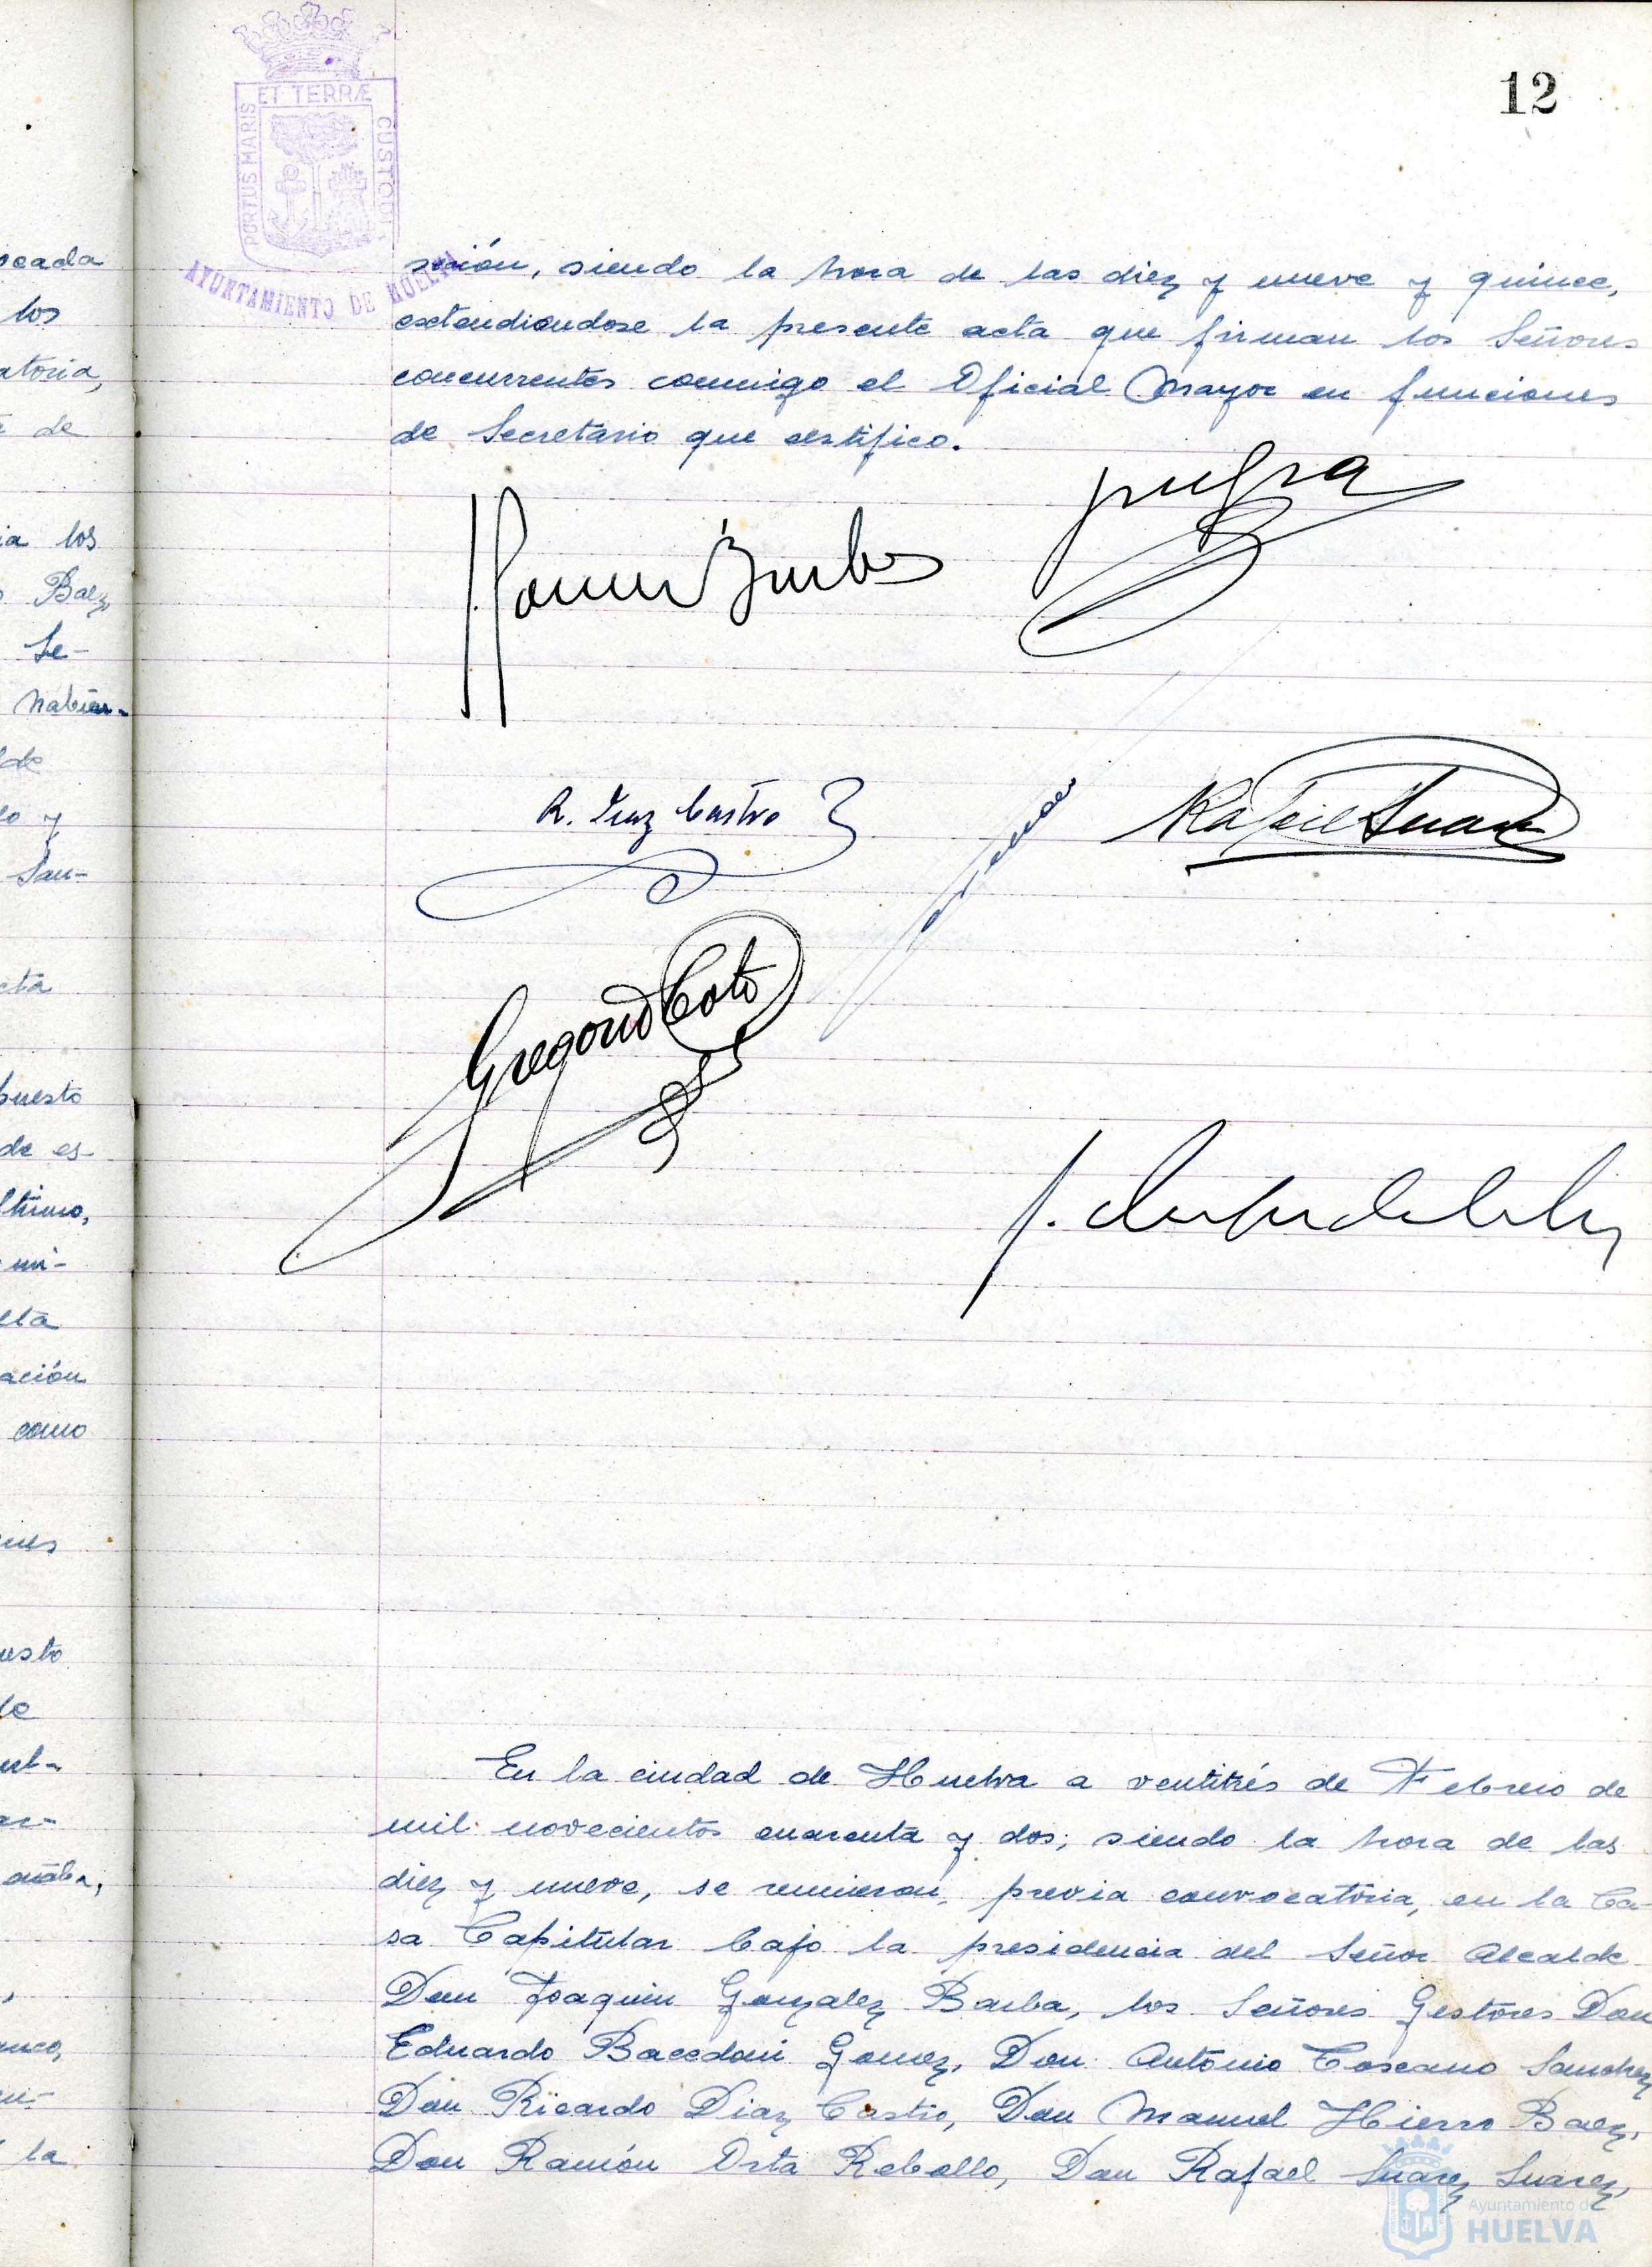 12
PORTUS MARIS ET TERRÆ CUSTODIA
AYUNTAMIENTO DE HUELVA
ocada
los
atoria,
de
ia los
Baez,
Se-
habien-
lo y
San-
cta
puesto
de es-
ltimo,
mi-
ación
como
uesto
de
la
sesión, siendo la hora de las diez y nueve y quince,
extendiendose la presente acta que firman los Señores
concurrentes conmigo el Oficial Mayor en funciones
de Secretario que certifico.
R. Diaz Castro
Rafael Suarez
Gregorio Coto
En la ciudad de Huelva a ventitrés de Febrero de
mil novecientos cuarenta y dos; siendo la hora de las
diez y nueve, se reunieron, previa convocatoria, en la Ca-
sa Capitular bajo la presidencia del Señor Alcalde
Don Joaquin Gonzalez Barba, los Señores Gestores Don
Eduardo Bacedoni Gomez, Don Antonio Toscano Sanchez
Don Ricardo Diaz Castro, Don Manuel Hierro Baez,
Don Ramón Orta Rebollo, Don Rafael Suarez Suarez,
Ayuntamiento de
HUELVA